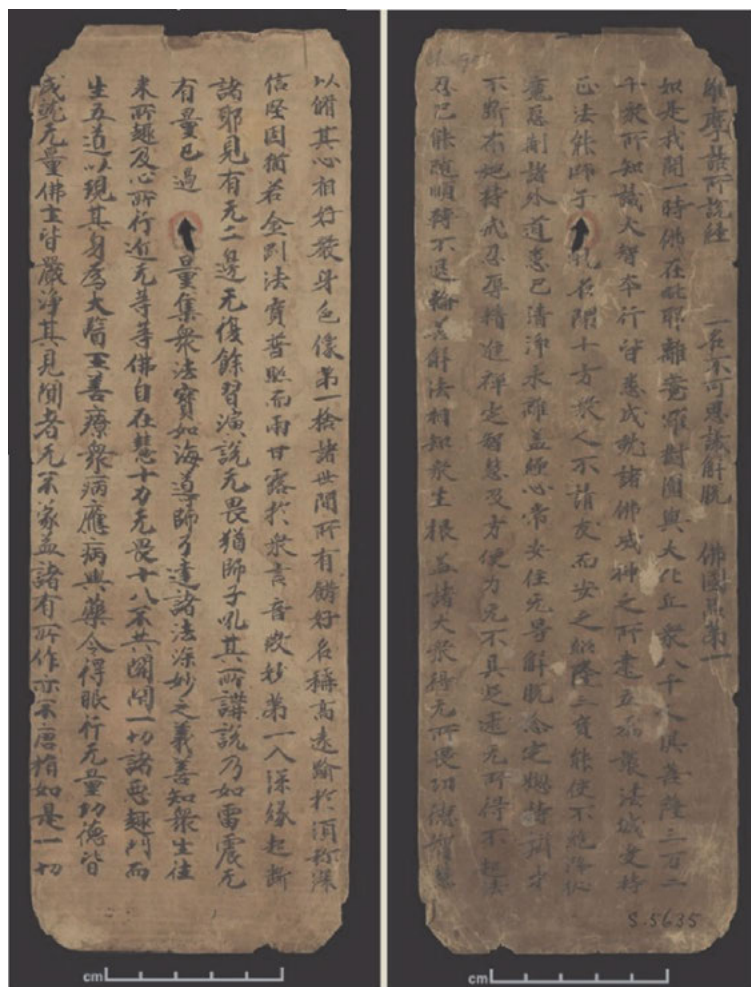 維摩詰所說經 一名不可思議解脫 佛國品第一
如是我聞一時佛在毗耶離菴羅樹園與大比丘衆八千人俱菩薩三万二
千衆所知識大智本行皆悉成就諸佛威神之所建立為護法城受持
正法能師子吼名聞十方衆人不請友而安之紹隆三寶能使不絕降伏
魔怨制諸外道悉已清淨永離蓋纏心常安住无㝵解脫念定總持辯才
不斷布施持戒忍辱精進禪定智慧及方便力无不具足逮无所得不起法
忍已能隨順轉不退輪善解法相知衆生根蓋諸大衆得无所畏功德智慧
S.5635
cm
以脩其心相好嚴身色像第一捨諸世間所有餝好名稱高遠踰於湏弥深
信堅固猶若金剛法寶普照而雨甘露於衆言音微妙第一入深緣起斷
諸耶見有无二邊无復餘習演說无畏猶師子吼其所講說乃如雷震无
有量已過 量集衆法寶如海導師了達諸法深妙之義善知衆生往
來所趣及心所行近无等等佛自在慧十力无畏十八不共關閇一切諸惡趣門而
生五道以現其身為大醫王善療衆病應病與藥令得服行无量功德皆
成就无量佛土皆嚴淨其見聞者无不蒙益諸有所作亦不唐捐如是一切
cm